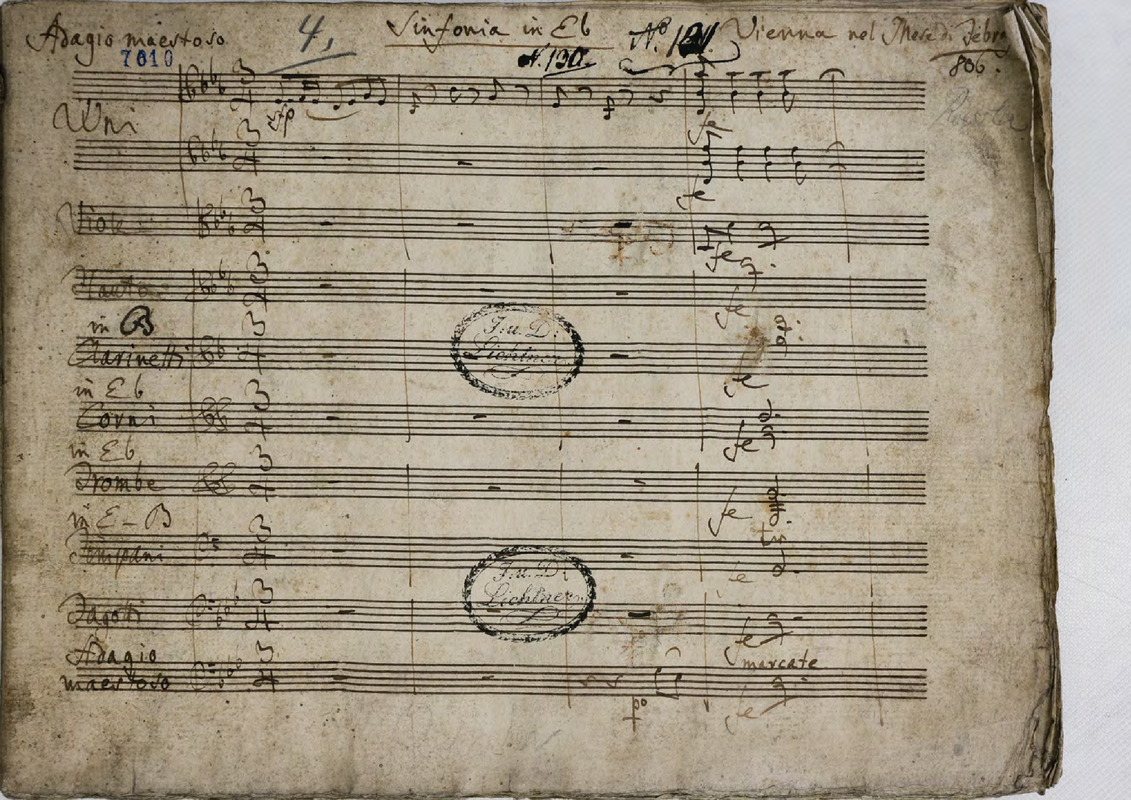 Adagio maestoso
4.
Sinfonia in Eb
No. 121.
Vienna nel Mese di Febro
806.
7610
N. 130.
Vvni
Viole
Flauto
in B
Clarinetti
in Eb
Corni
in Eb
Trombe
in E-B
Timpani
Fagotti
Adagio
maestoso
sfp
fe
fe
fe
fe
fe
fe
tr
fe
fe
marcate
fe
J. u. D:
Lichtner
J. u. D:
Lichtner